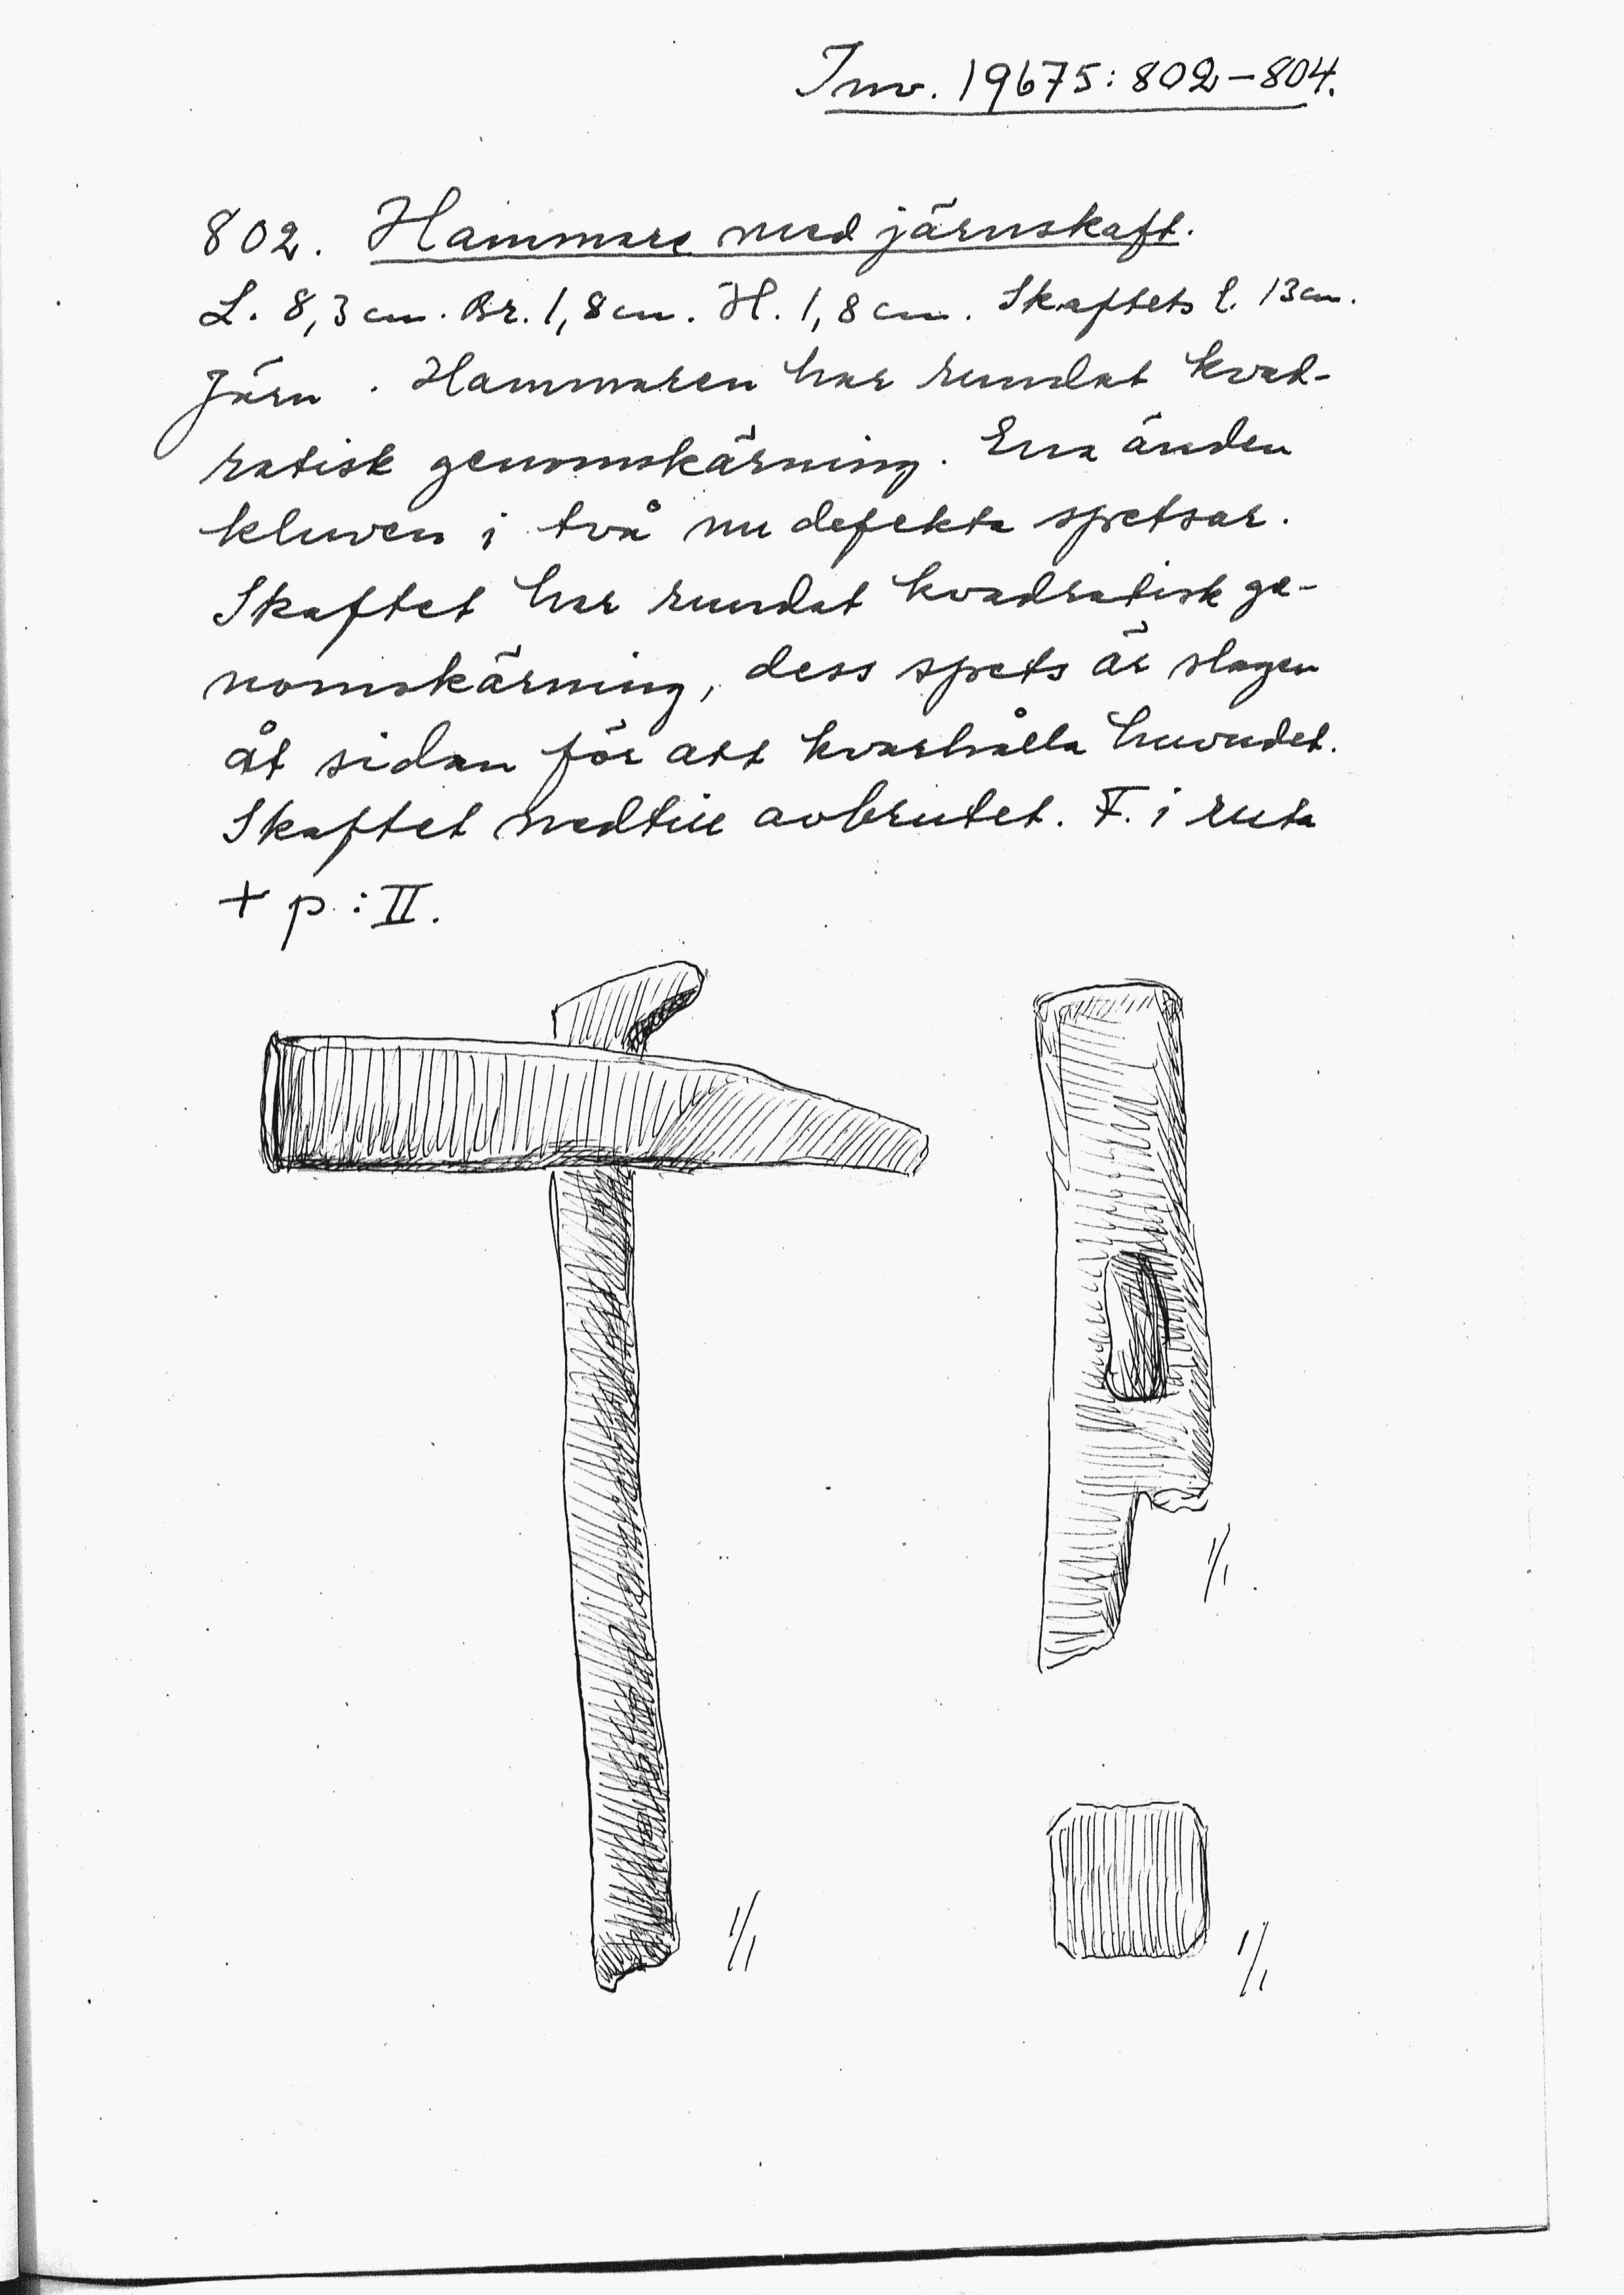 Inv. 19675:802–804.
802. Hammare med järnskaft.
L. 8,3 cm. Br. 1,8 cm. H. 1,8 cm. Skaftets l. 13 cm.
Järn. Hammaren har rundat kvad-
ratisk genomskärning. Ena änden
kluven i två nu defekta spetsar.
Skaftet har rundat kvadratisk ge-
nomskärning, dess spets är slagen
åt sidan för att kvarhålla huvudet.
Skaftet nedtill avbrutet. F. i ruta
+ p:II.
1/1.
1/1
1/1